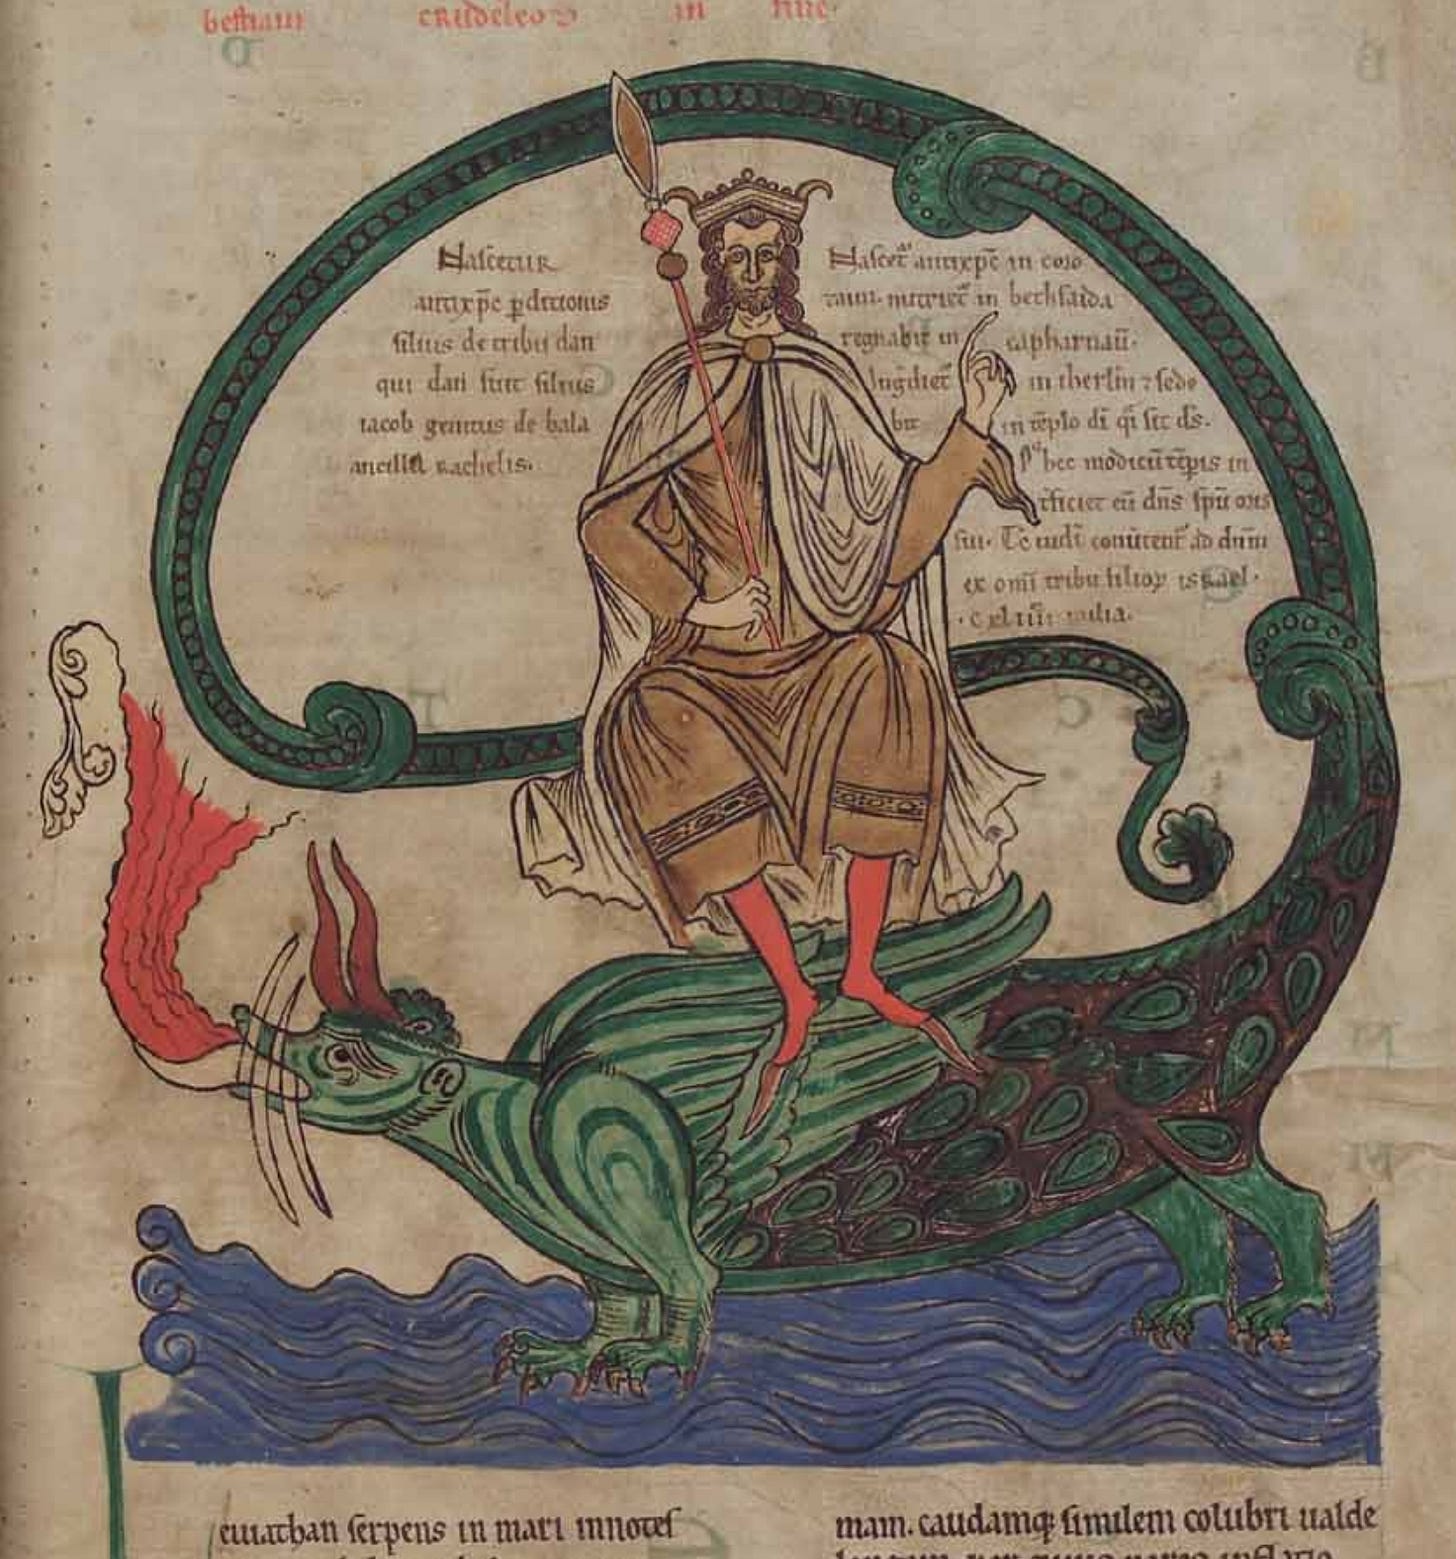 bestiam crudeleo in fine.
Nascetur
antixp̄c ꝑditionis
filius de tribu dan
qui dan fuit filius
iacob genitus de bala
ancilla rachelis.
Nascet᷑ antixp̄c in coro
zaim. nutriet᷑ in bethsaida
regnabit in capharnaū.
in iherl̄m ⁊ sede
bit in tēplo dī q̄i sit d̄s.
hec modicū tēꝑis in
tficiet eū dn̄s sp̄u oris
sui. Tc̄ iudi conūtent᷑ ad dn̄m
ex omī tribu filioꝝ israel.
.cxliiii milia.
euiathan serpens in mari innotes
mam. caudamqꝫ similem colubri ualde